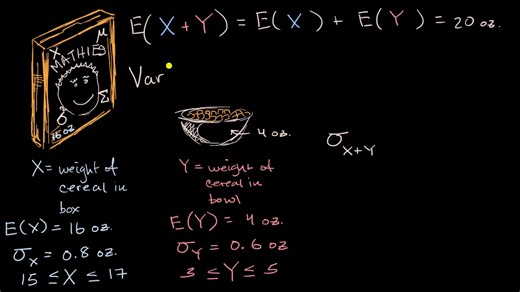 E(X+Y) = E(X) + E(Y) = 20 oz.
Var
μ
X
MATHIES
σ
Σ
16 oz
4 oz.
σ_{X+Y}
X = weight of
cereal in
box
E(X) = 16 oz.
σ_X = 0.8 oz.
15 ≤ X ≤ 17
Y = weight of
cereal in
bowl
E(Y) = 4 oz.
σ_Y = 0.6 oz
3 ≤ Y ≤ 5